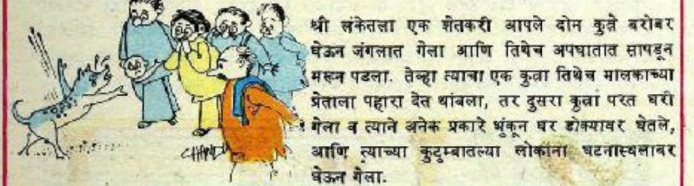 श्री लंकेतला एक शेतकरी आपले दोन कुत्रे बरोबर
घेऊन जंगलात गेला आणि तिथेच अपघातात सापडून
मरून पडला. तेव्हा त्याचा एक कुत्रा तिथेच मालकाच्या
प्रेताला पहारा देत थांबला, तर दुसरा कुत्रा परत घरी
गेला व त्याने अनेक प्रकारे भुंकून घर डोक्यावर घेतले,
आणि त्याच्या कुटुम्बातल्या लोकांना घटनास्थलावर
घेऊन गेला.